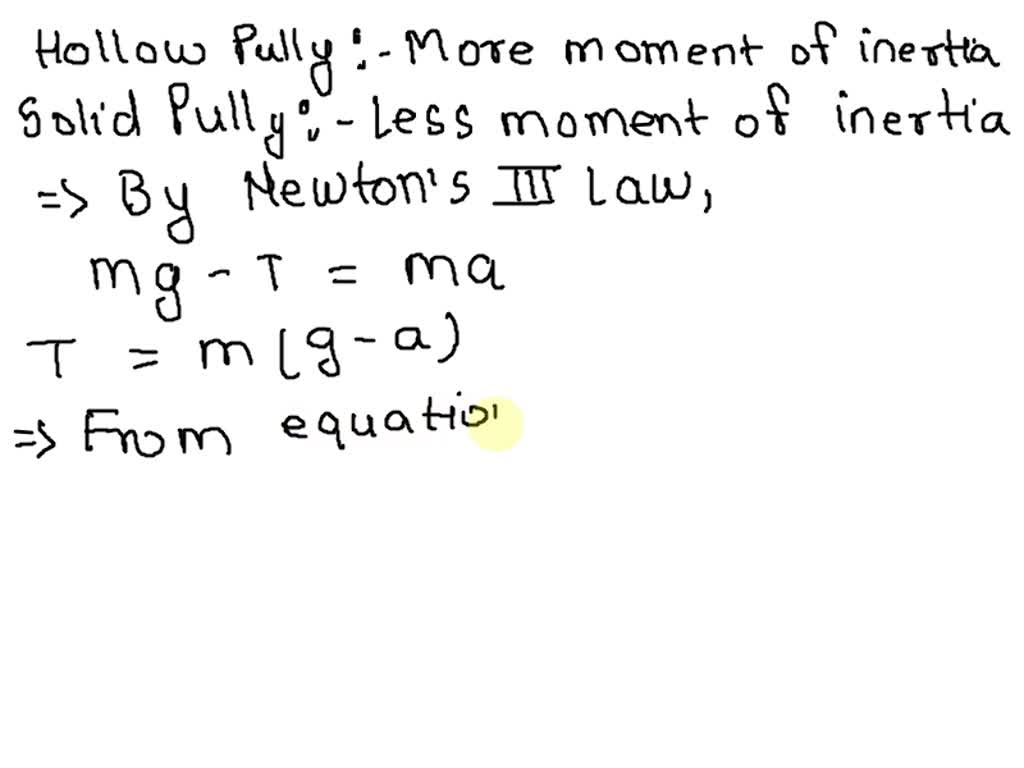 Hollow Pully :- More moment of inertia
Solid Pully :- Less moment of inertia
=> By Newton's III Law,
mg - T = ma
T = m(g-a)
=> From equation